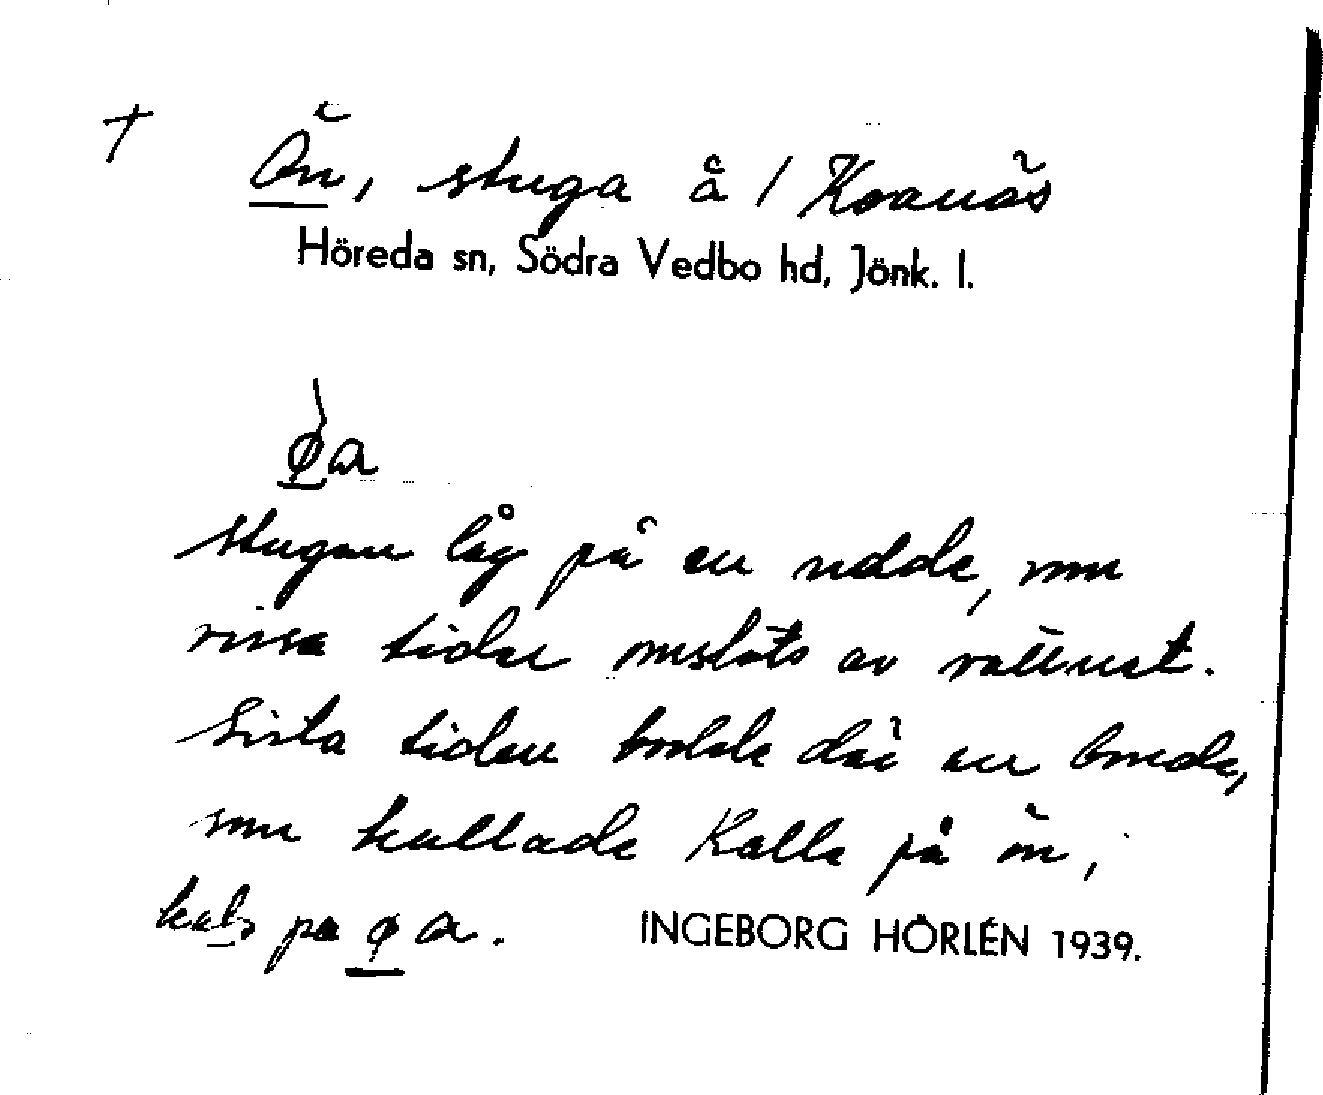 †
Ön, stuga å 1 Kvanäs
Höreda sn, Södra Vedbo hd, Jönk. l.
øa
stugan låg på en udde, som
vissa tider omslöts av vattnet.
Sista tiden bodde där en bonde,
som kallade Kalle på ön,
kal, pa øa.
INGEBORG HÖRLÉN 1939.